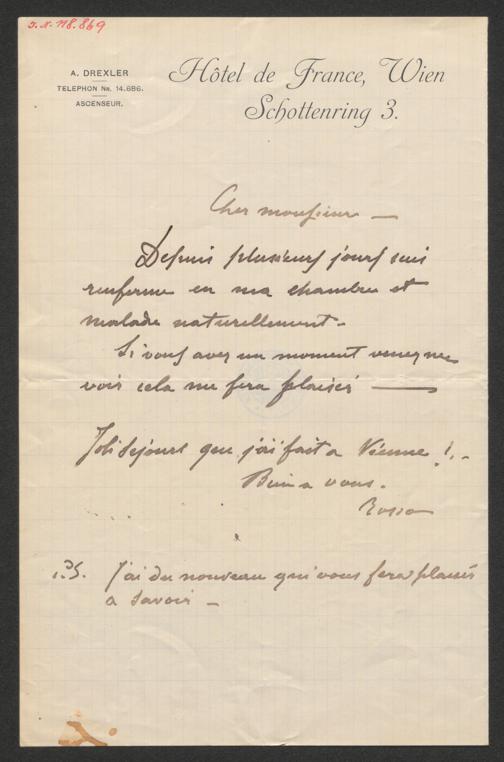 J.N. 118.869
A. DREXLER
TELEPHON No. 14.686.
ASCENSEUR.
Hôtel de France, Wien
Schottenring 3.
Cher monsieur —
Depuis plusieurs jours suis
renfermé en ma chambre et
malade naturellement.
Si vous avez un moment venez me
voir cela me fera plaisir —
Joli sejours que j'ai fait a Vienne !. -
Bien a vous.
Rosso
P.S. J'ai du nouveau qui vous fera plaisir
a savoir —